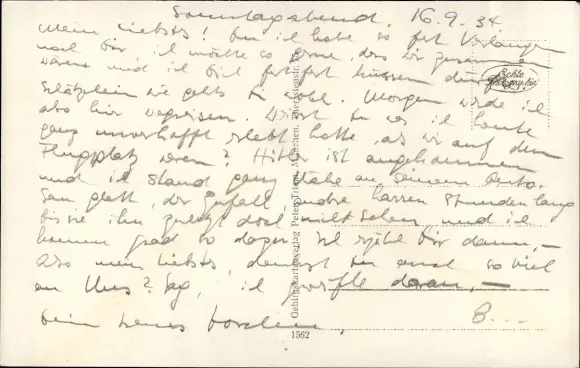 Sonntagabend. 16.9.34
Mein Liebstes! Du ich habe so fest Verlangen
nach Dir ich möchte so gerne, dass wir zusammen
wären und ich Dich fest fest küssen
Schätzlein wie gehts Dir wohl. Morgen werde ich
also hier wegreisen. Weisst Du was ich heute
ganz unverhofft erlebt hatte, als wir auf dem
Flugplatz waren? Hitler ist angekommen
und ich stand ganz nahe an seinem Auto.
der Zufall, andre harren Stundenlang
bis sie ihn zuletzt doch nicht sehen und ich
komme grad so dazu. Ich erzähl Dir dann, –
Also mein Liebstes, denkst Du auch so viel
an Uns? Sag, ich daran, –
B...
Echte Photographie
Gebirgskartenverlag Peter
1562